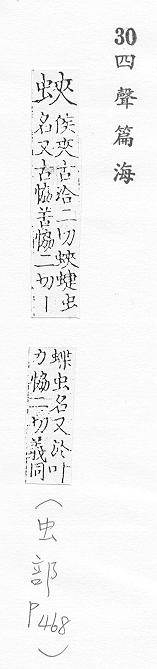 30四聲篇海
蛺
侯夾古洽二切蛺蜨虫
名又古恊苦恊二切丨
蝶虫名又於叶
力恊二切義同
(虫部P468)